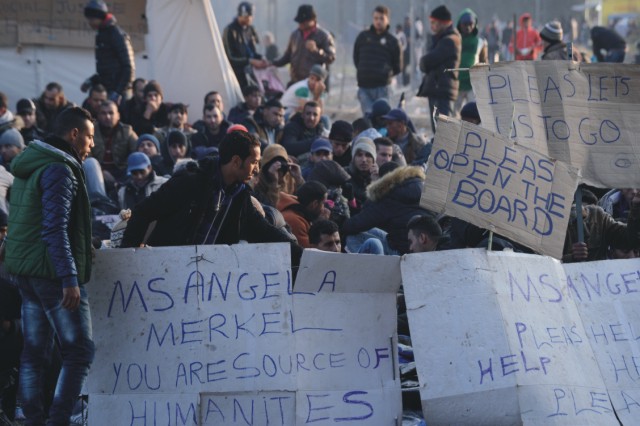 PLEAS LETS
US TO GO
PLEAS
OPEN THE
BOARD
MS ANGELA
MERKEL
YOU ARE SOURCE OF
HUMANITIES
MS ANGE
PLEAS HEL
HELP
PLEAS